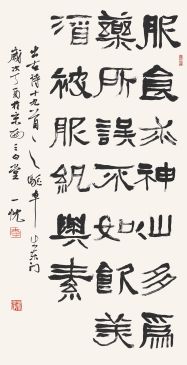 服食求神仙多爲
藥所誤不如飲美
酒被服紈與素
古詩十九首之驅車上東門
歲次丁酉於京西三白堂 一忱